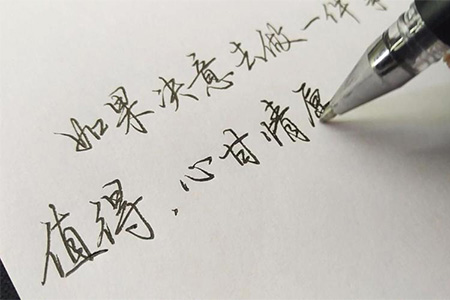 如果决意去做一件
值得、心甘情